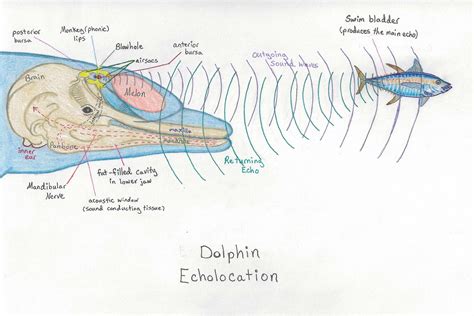 posterior
bursa
Monkey(phonic)
lips
Blowhole
airsacs
anterior
bursa
Outgoing
Sound Waves
Swim bladder
(produces the main echo)
Brain
Melon
maxilla
mandible
inner
ear
Panbone
Returning
Echo
Mandibular
Nerve
fat-filled cavity
in lower jaw
acoustic window
(sound conducting tissue)
Dolphin
Echolocation